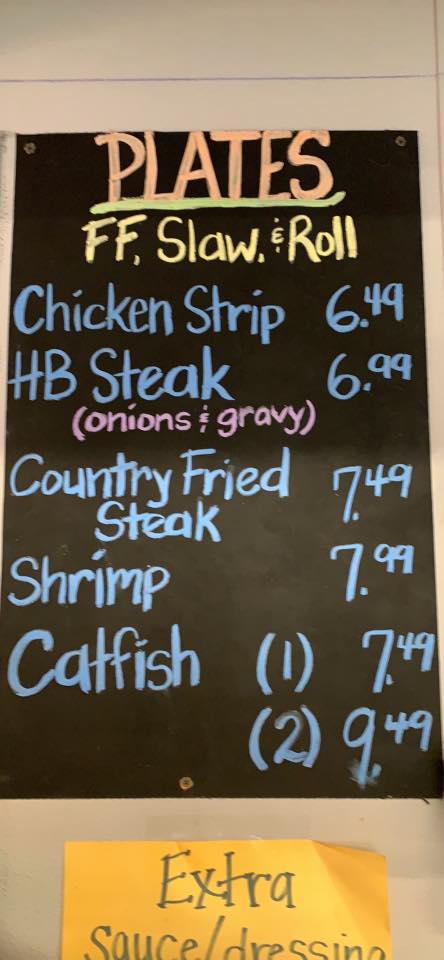 PLATES
FF, Slaw, & Roll
Chicken Strip 6.49
HB Steak 6.99
(onions & gravy)
Country Fried 7.49
Steak
Shrimp 7.99
Catfish (1) 7.49
(2) 9.49
Extra
Sauce/dressing